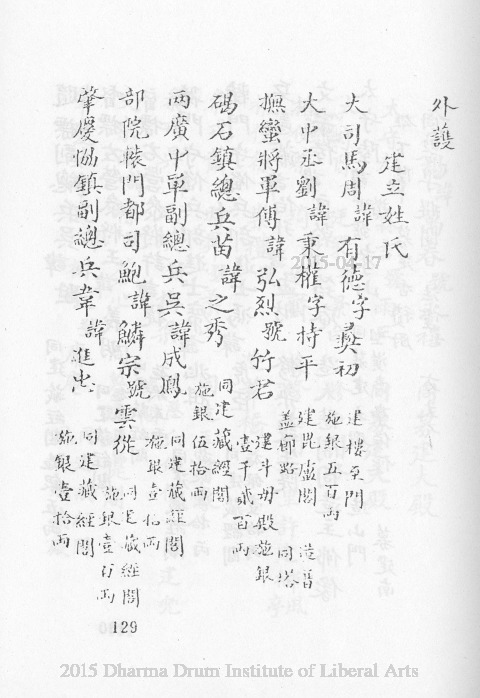 外護
建立姓氏
大司馬周諱有德字彝初
建樓至門
施銀五百両
大中丞劉諱秉權字持平
建毘盧閣
蓋廊路
造普同塔
撫蠻將軍傅諱弘烈號竹君
建斗母殿施銀
壹千貳百両
碣石鎮總兵苗諱之秀
同建藏經閣
施銀伍拾両
两廣中軍副總兵吳諱成鳳
同建藏經閣
施銀壹拾両
部院轅門都司鮑諱鱗宗號雲從
同建藏經閣
施銀壹百両
肇慶協鎮副總兵韋諱進忠
同建藏經閣
施銀壹拾両
129
2015-04-17
2015 Dharma Drum Institute of Liberal Arts